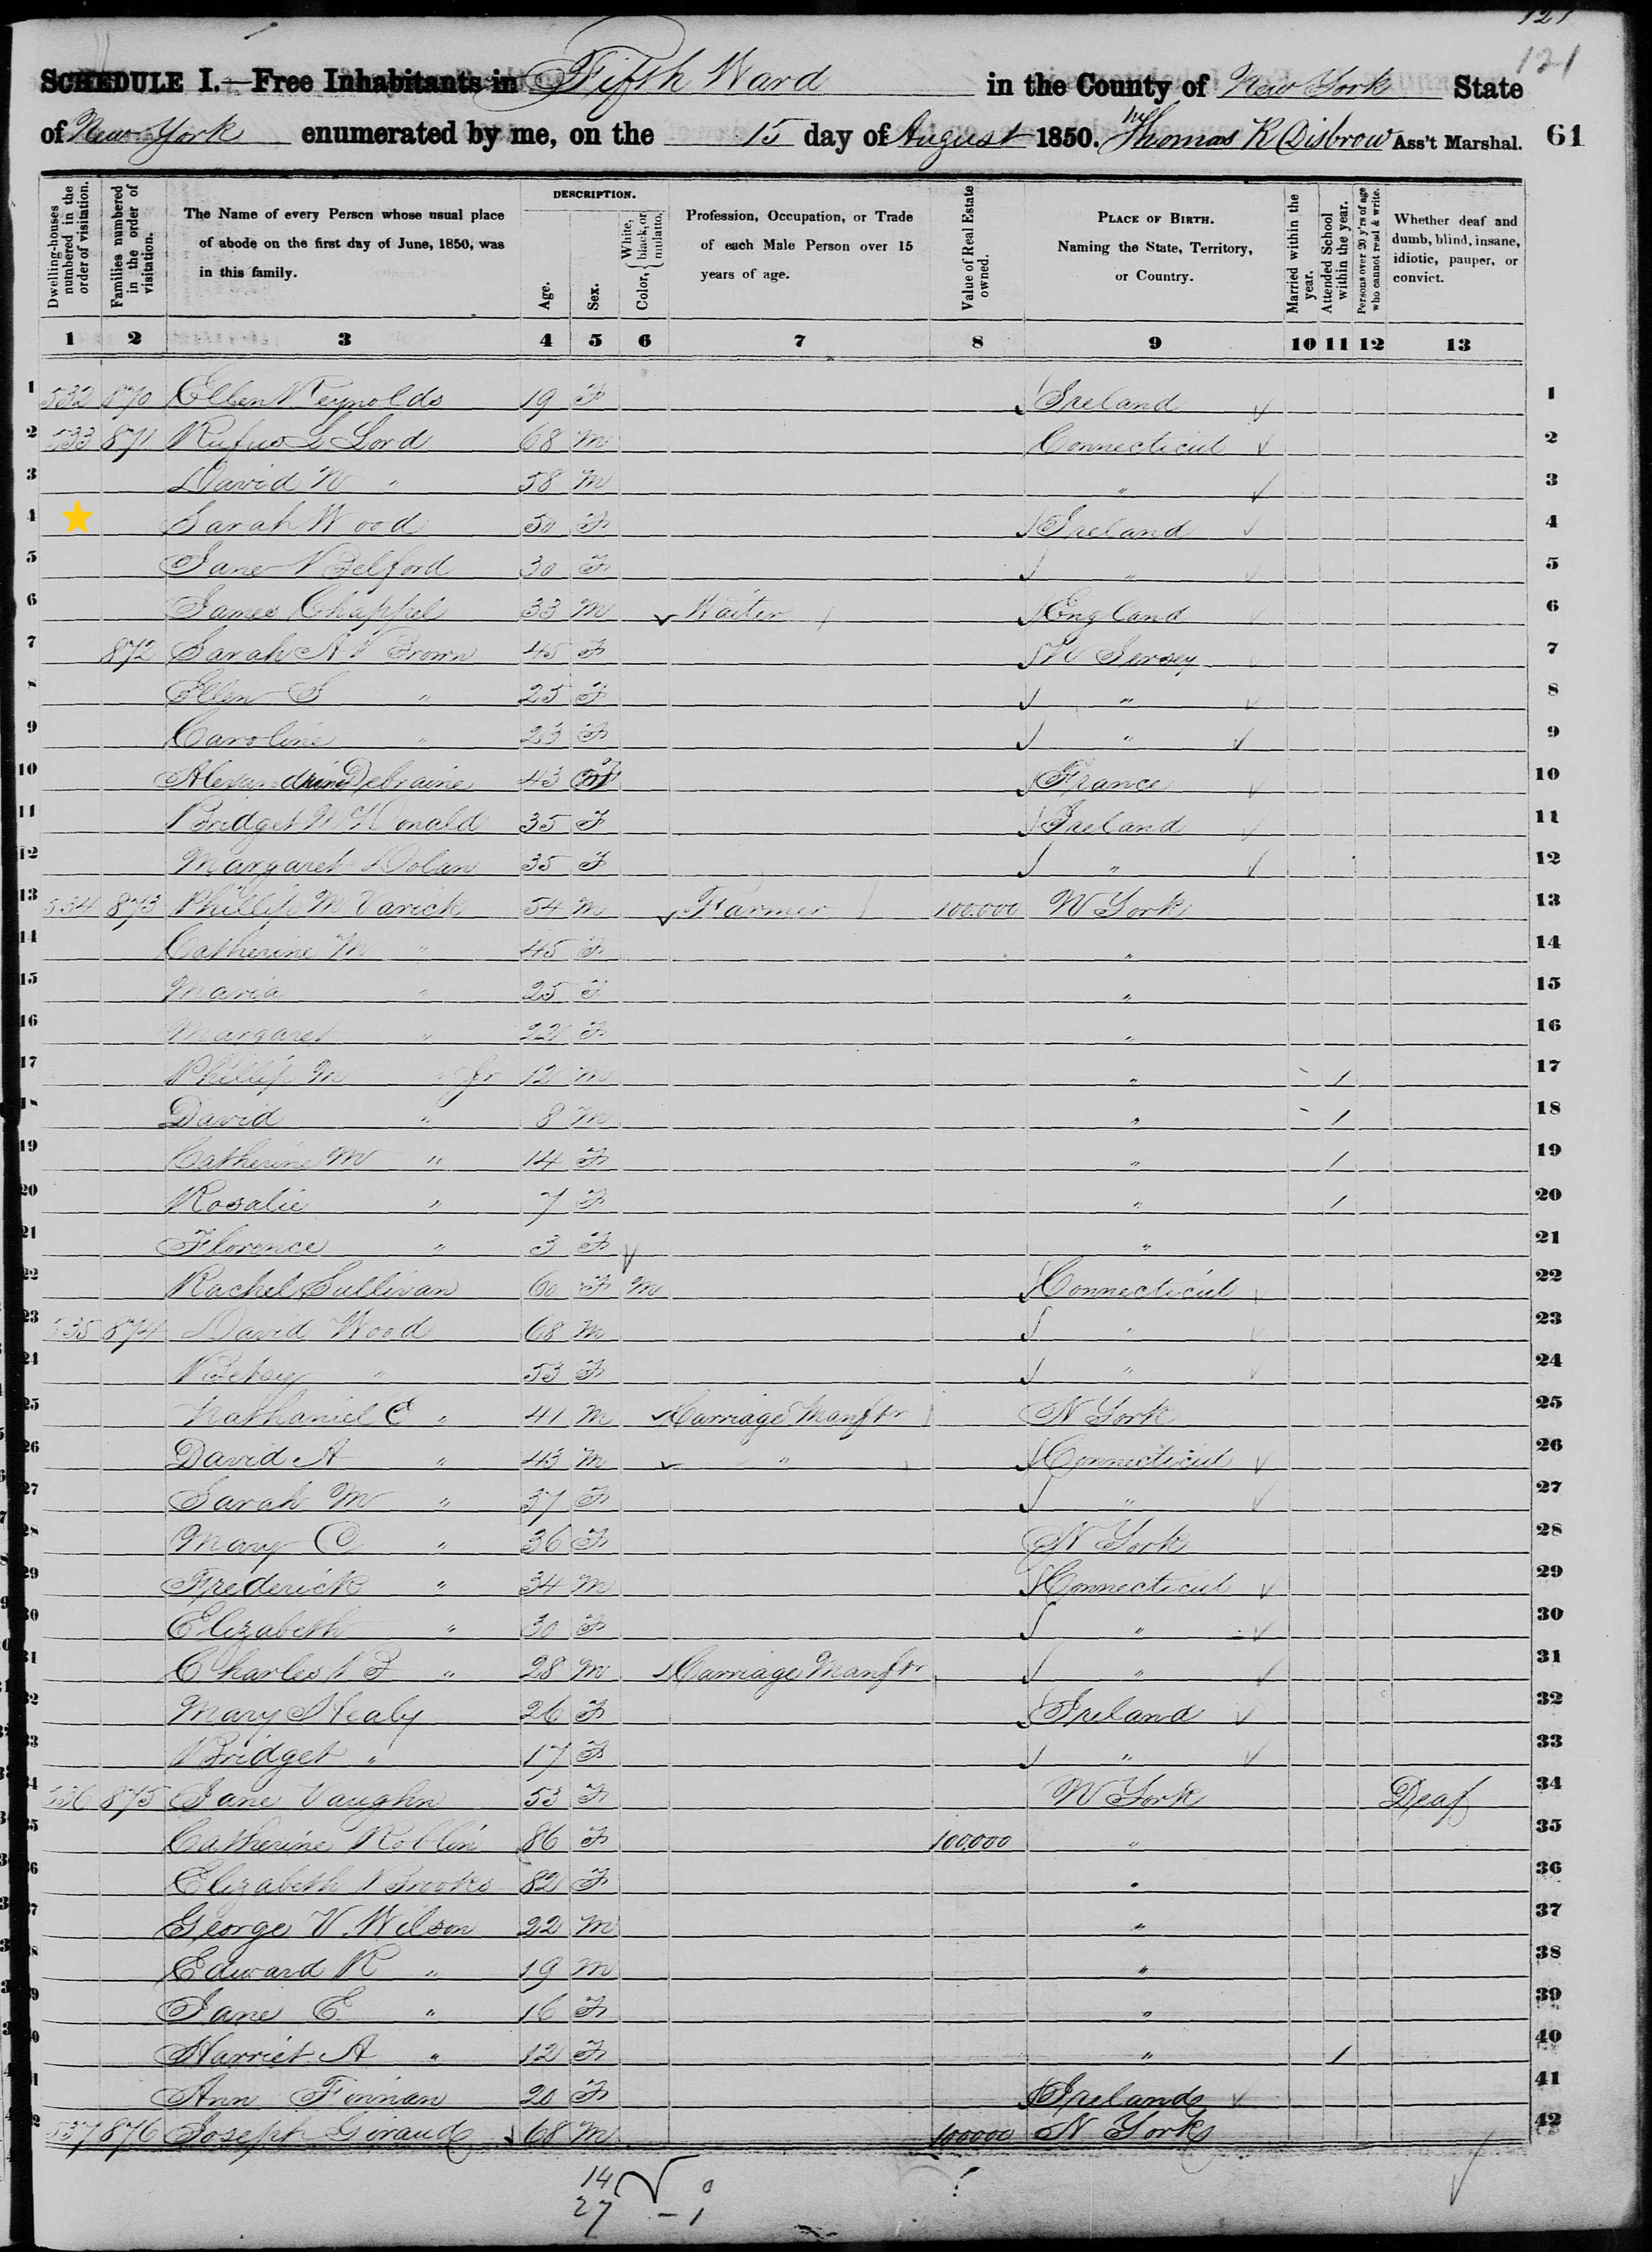 121
121
SCHEDULE I.—Free Inhabitants in Fifth Ward in the County of New York State
of New York enumerated by me, on the 15 day of August 1850. Thomas R Disbrow Ass't Marshal. 61
Dwelling-houses numbered in the order of visitation.
Families numbered in the order of visitation.
The Name of every Person whose usual place of abode on the first day of June, 1850, was in this family.
DESCRIPTION.
Age.
Sex.
Color, { White, black, or mulatto.
Profession, Occupation, or Trade of each Male Person over 15 years of age.
Value of Real Estate owned.
PLACE OF BIRTH. Naming the State, Territory, or Country.
Married within the year.
Attended School within the year.
Persons over 20 y'rs of age who cannot read & write.
Whether deaf and dumb, blind, insane, idiotic, pauper, or convict.
1 2 3 4 5 6 7 8 9 10 11 12 13
1 532 870 Ellen Reynolds 19 F Ireland 1
2 533 871 Rufus L Lord 68 M Connecticut 2
3 David N " 58 M " 3
4 Sarah Wood 50 F Ireland 4
5 Jane Belford 30 F " 5
6 James Chappel 33 M Waiter England 6
7 872 Sarah A Brown 45 F N Jersey 7
8 Ellen S " 25 F " 8
9 Caroline " 23 F " 9
10 Alexandrine Debraine 43 F France 10
11 Bridget McDonald 35 F Ireland 11
12 Margaret Dolan 35 F " 12
13 534 873 Phillip M Varick 54 M Farmer 100.000 N York 13
14 Catherine M " 45 F " 14
15 Maria " 25 F " 15
16 Margaret " 22 F " 16
17 Phillip M " Jr 12 M " 1 17
18 David " 8 M " 1 18
19 Catherine M " 14 F " 1 19
20 Rosalie " 7 F " 1 20
21 Florence " 3 F " 21
22 Rachel Sullivan 60 F M Connecticut 22
23 535 874 David Wood 68 M " 23
24 Betsey " 53 F " 24
25 Nathaniel C " 41 M Carriage Manftr N York 25
26 David A " 43 M " Connecticut 26
27 Sarah M " 37 F " 27
28 Mary C " 36 F N York 28
29 Frederick " 34 M Connecticut 29
30 Elizabeth " 30 F " 30
31 Charles B " 28 M Carriage Manftr " 31
32 Mary Healy 26 F Ireland 32
33 Bridget " 17 F " 33
34 536 875 Jane Vaughn 53 F N York Deaf 34
35 Catherine Roblin 86 F 100,000 " 35
36 Elizabeth Brooks 82 F " 36
37 George V. Wilson 22 M " 37
38 Edward R " 19 M " 38
39 Jane E " 16 F " 39
40 Harriet A " 12 F " 1 40
41 Ann Finnan 20 F Ireland 41
42 537 876 Joseph Giraud 68 M 100000 N York 42
14
27 - 1